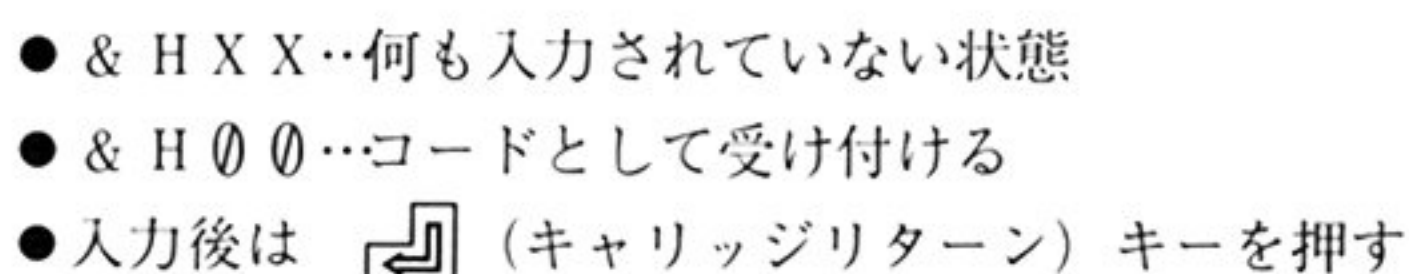 ● & H X X‥何も入力されていない状態
● & H 0̸ 0̸ …コードとして受け付ける
●入力後は ⏎ (キャリッジリターン) キーを押す